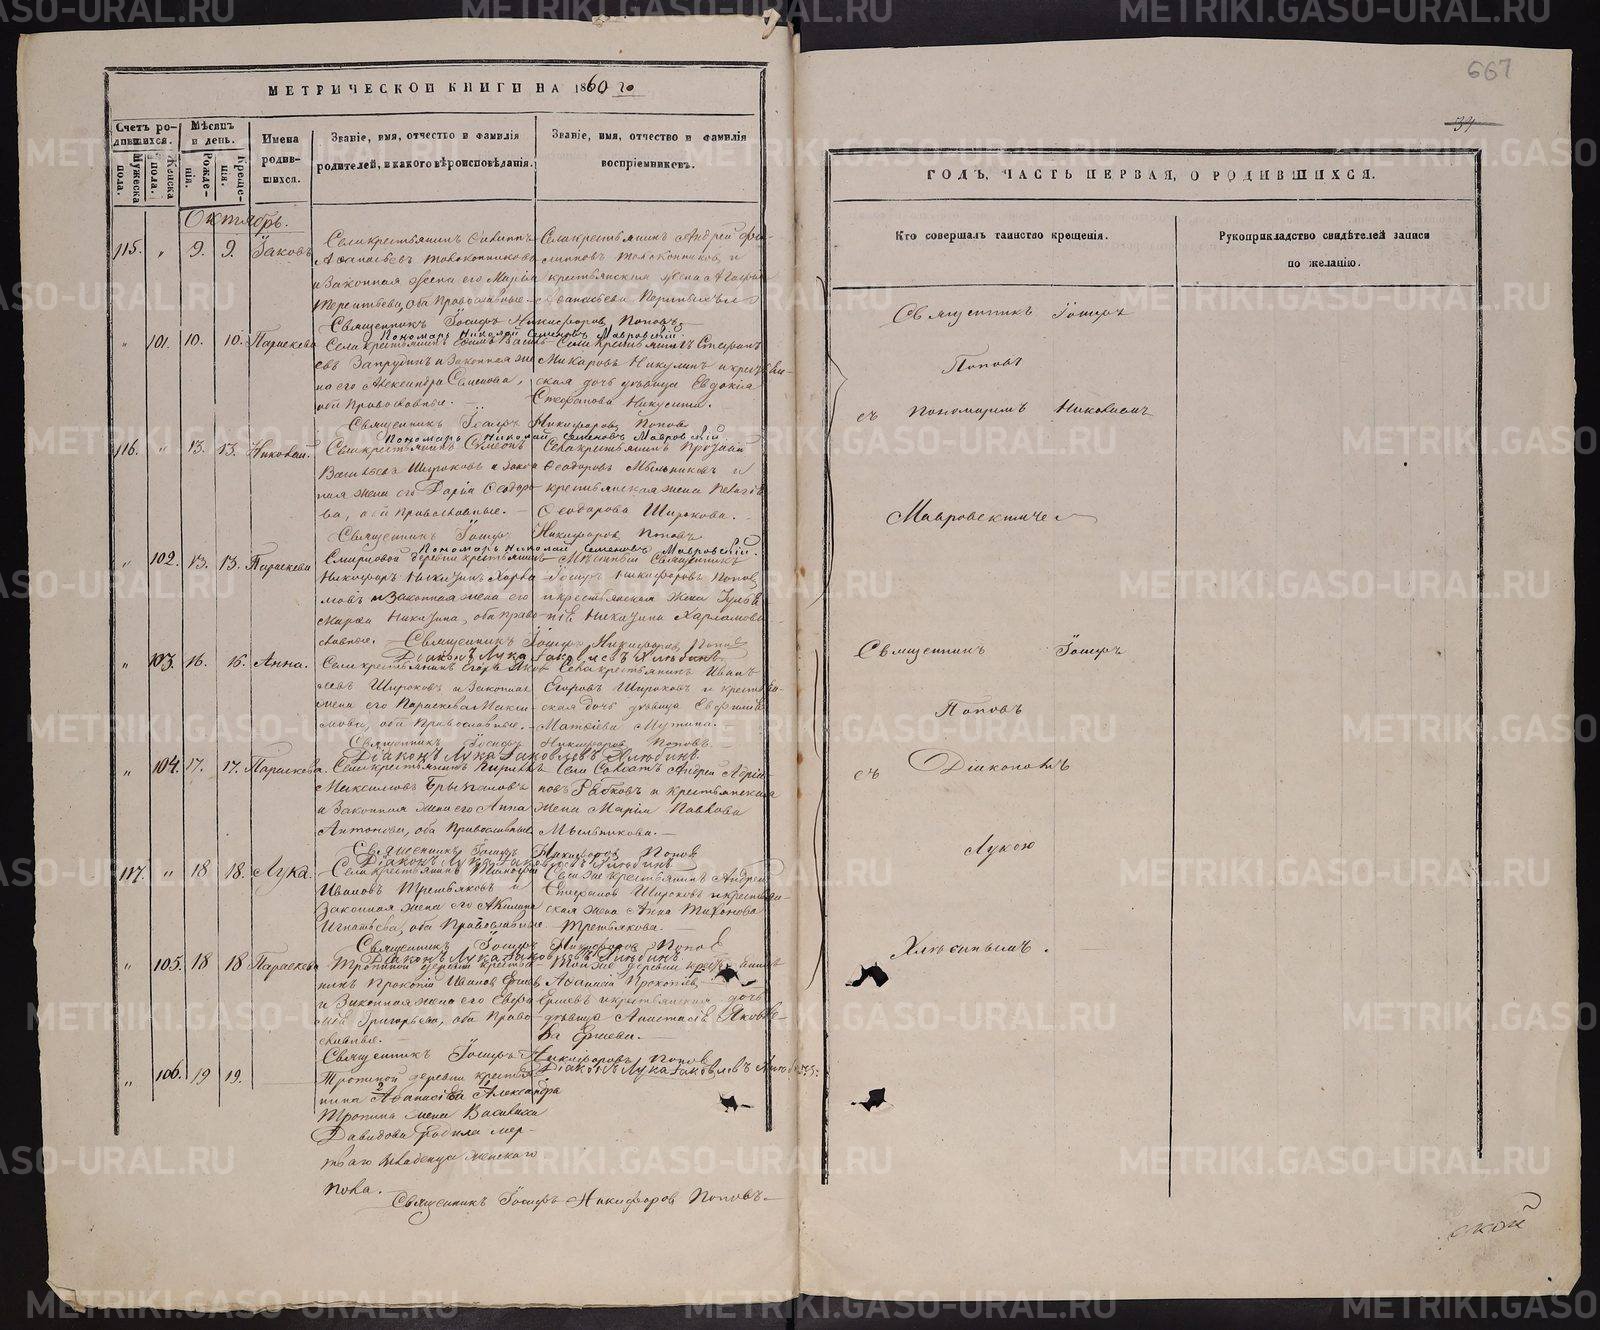 МЕТРИЧЕСКОЙ КНИГИ НА 1860 го
Счетъ родившихся.
Мѣсяцъ и день.
Имена родившихся.
Званіе, имя, отчество и фамилія родителей, и какого вѣроисповѣданія.
Званіе, имя, отчество и фамилія воспріемниковъ.
Мужеска пола.
Женска пола.
Рожденія.
Крещенія.
Октябрь.
115. " 9. 9. Іаковъ
Села крестьянинъ Филиппъ
и законная жена его Марія
Терентьева, оба Православные.
Села крестьянинъ Андрей
Священникъ Іосифъ Никифоровъ Поповъ
Пономарь Николай Семеновъ Мавровскій.
" 101. 10. 10. Параскева
Села крестьянинъ
евъ Запрудинъ и законная же
на его Александра Семенова,
оба Православные.
Села крестьянинъ Стефанъ
Макаровъ Никулинъ и крестьян-
ская дочь дѣвица Евдокія
Стефанова Никулина.
Священникъ Іосифъ Никифоровъ Поповъ
Пономарь Николай Семеновъ Мавровскій.
116. " 13. 13. Николай.
Села крестьянинъ Симеонъ
Васильевъ Широковъ и закон
ная жена его Дарія Феодоро
ва, оба Православные.
Села крестьянинъ
Феодоровъ Мыльниковъ и
крестьянская жена Пелагія
Феодорова Широкова.
Священникъ Іосифъ Никифоровъ Поповъ
Пономарь Николай Семеновъ Мавровскій.
" 102. 13. 13. Параскева
Смирновой деревни крестьянинъ
Никифоръ Никитинъ Харла
мовъ и законная жена его
Никитина, оба Право-
славные.
Мѣстный Священникъ
Іосифъ Никифоровъ Поповъ
и крестьянская жена
Никитина Харламова
Священникъ Іосифъ Никифоровъ Поповъ
Діаконъ Лука Іаковлевъ Хлѣбинъ
" 103. 16. 16. Анна.
Села крестьянинъ Егоръ Яков
левъ Широковъ и законная
жена его Параскева Макси
мова, оба Православные.
Села крестьянинъ Иванъ
Егоровъ Широковъ и крестьян-
ская дочь дѣвица Евфимія
Матѳіева Мутина.
Священникъ Іосифъ Никифоровъ Поповъ.
Діаконъ Лука Іаковлевъ Хлѣбинъ.
" 104. 17. 17. Параскева.
Села крестьянинъ Кириллъ
Максимовъ Брызгаловъ
и законная жена его Анна
Антонова, оба Православные
Села Солдатъ Андрей Адріа
новъ Рябковъ и крестьянская
жена Марія Павлова
Мыльникова.
Священникъ Іосифъ Никифоровъ Поповъ
Діаконъ Лука Іаковлевъ Хлѣбинъ
117. " 18 18. Лука.
Села крестьянинъ Тимофей
Ивановъ Третьяковъ и
законная жена его Акилина
Игнатьева, оба Православные
Села же крестьянинъ Андрей
Стефановъ Широковъ и крестьян-
ская жена Анна Тихонова
Третьякова.
Священникъ Іосифъ Никифоровъ Поповъ
Діаконъ Лука Іаковлевъ Хлѣбинъ
" 105. 18 18 Параскева
Тропиной деревни крестья-
нинъ Прокопій Ивановъ Ершевъ
и законная жена его
Григорьева, оба Право-
славные.
Той же деревни крестьянинъ
Аѳанасій Прокопьевъ
Ершевъ и крестьянская дочь
дѣвица Анастасія Яковле
ва Ершева.
Священникъ Іосифъ Никифоровъ Поповъ
Діаконъ Лука Іаковлевъ Хлѣбинъ.
" 106. 19 19.
Тропиной деревни крестья
нина Аѳанасія Александра
Тропина жена Василиса
Давидова родила мер-
тваго младенца женскаго
пола.
Священникъ Іосифъ Никифоровъ Поповъ
667
34
ГОДЪ, ЧАСТЬ ПЕРВАЯ, О РОДИВШИХСЯ.
Кто совершалъ таинство крещенія.
Рукоприкладство свидѣтелей записи по желанію.
Священникъ Іосифъ
Поповъ
съ Пономаремъ Николаемъ
Мавровскимъ
Священникъ Іосифъ
Поповъ
съ Діакономъ
Лукою
Хлѣбинымъ.
ской
METRIKI.GASO-URAL.RU